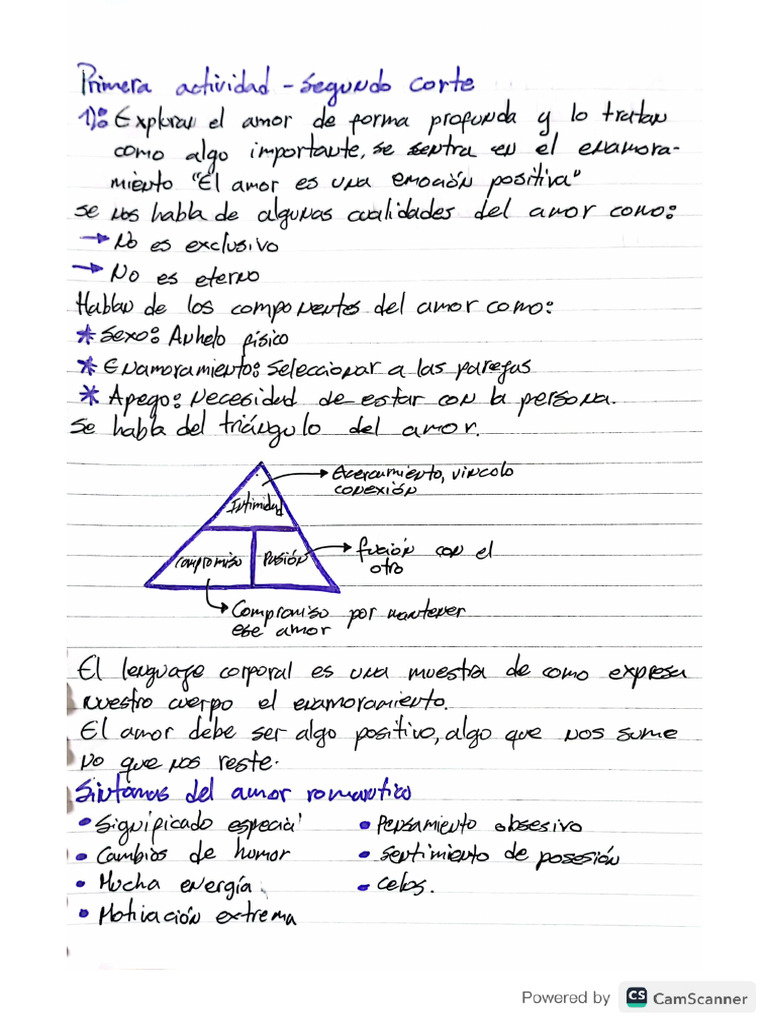 Primera actividad - Segundo corte
1): Exploran el amor de forma profunda y lo tratan
como algo importante, se sentra en el enamora-
miento "El amor es una emoción positiva"
se nos habla de algunas cualidades del amor como:
→ No es exclusivo
→ No es eterno
Hablan de los componentes del amor como:
* Sexo: Anhelo físico
* Enamoramiento: Seleccionar a las parejas
* Apego: Necesidad de estar con la persona.
se habla del triángulo del amor.
→ Acercamiento, vinculo
conexión
Intimidad
Compromiso Pasión → fusión con el
otro
→ Compromiso por mantener
ese amor
El lenguaje corporal es una muestra de como expresa
nuestro cuerpo el enamoramiento.
El amor debe ser algo positivo, algo que nos sume
no que nos reste.
Sintomas del amor romantico
• Significado especial • Pensamiento obsesivo
• Cambios de humor • Sentimiento de posesión
• Mucha energía • Celos.
• Motivación extrema
Powered by CS CamScanner